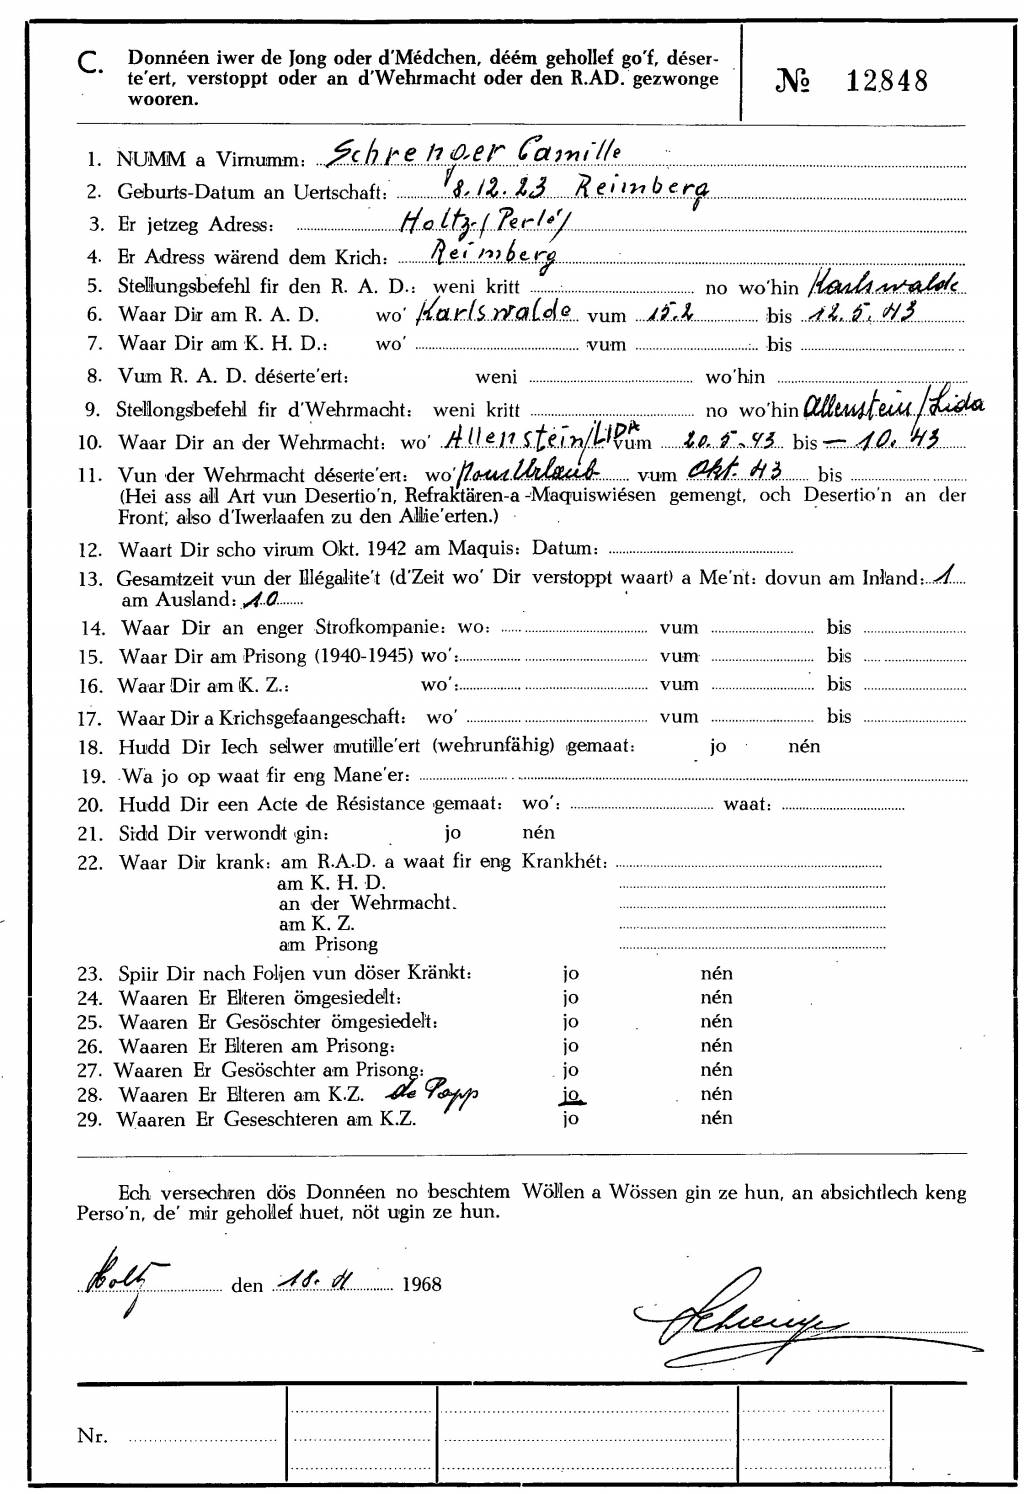 C. Donnéen iwer de Jong oder d'Médchen, déém gehollef go'f, déser-
te'ert, verstoppt oder an d'Wehrmacht oder den R.AD. gezwonge
wooren.
№ 12848
1. NUMM a Virnumm: Schrenger Camille
2. Geburts-Datum an Uertschaft: 8.12.23 Reimberg
3. Er jetzeg Adress: Holtz (Perlé)
4. Er Adress wärend dem Krich: Reimberg
5. Stellungsbefehl fir den R. A. D.: weni kritt no wo'hin Karlswalde
6. Waar Dir am R. A. D. wo' Karlswalde vum 15.2 bis 12.5.43
7. Waar Dir am K. H. D.: wo' vum bis
8. Vum R. A. D. déserte'ert: weni wo'hin
9. Stellongsbefehl fir d'Wehrmacht: weni kritt no wo'hin Allenstein/Lida
10. Waar Dir an der Wehrmacht: wo' Allenstein/LIDA vum 20.5.43 bis – 10.43
11. Vun der Wehrmacht déserte'ert: wo' Urlaub vum Okt. 43 bis
(Hei ass all Art vun Desertio'n, Refraktären-a -Maquiswiésen gemengt, och Desertio'n an der
Front; also d'Iwerlaafen zu den Allie'erten.)
12. Waart Dir scho virum Okt. 1942 am Maquis: Datum:
13. Gesamtzeit vun der Illégalite't (d'Zeit wo' Dir verstoppt waart) a Me'nt: dovun am Inland: 1
am Ausland: 10
14. Waar Dir an enger Strofkompanie: wo: vum bis
15. Waar Dir am Prisong (1940-1945) wo': vum bis
16. Waar Dir am K. Z.: wo': vum bis
17. Waar Dir a Krichsgefaangeschaft: wo' vum bis
18. Hudd Dir Iech selwer mutille'ert (wehrunfähig) gemaat: jo nén
19. Wa jo op waat fir eng Mane'er:
20. Hudd Dir een Acte de Résistance gemaat: wo': waat:
21. Sidd Dir verwondt gin: jo nén
22. Waar Dir krank: am R.A.D. a waat fir eng Krankhét:
am K. H. D.
an der Wehrmacht.
am K. Z.
am Prisong
23. Spiir Dir nach Foljen vun döser Kränkt: jo nén
24. Waaren Er Elteren ömgesiedelt: jo nén
25. Waaren Er Gesöschter ömgesiedelt: jo nén
26. Waaren Er Elteren am Prisong: jo nén
27. Waaren Er Gesöschter am Prisong: jo nén
28. Waaren Er Elteren am K.Z. de Papp jo nén
29. Waaren Er Geseschteren am K.Z. jo nén
Ech versechren dös Donnéen no beschtem Wöllen a Wössen gin ze hun, an absichtlech keng
Perso'n, de' mir gehollef huet, nöt ugin ze hun.
Holtz den 18. 1968
Schrenger
Nr.